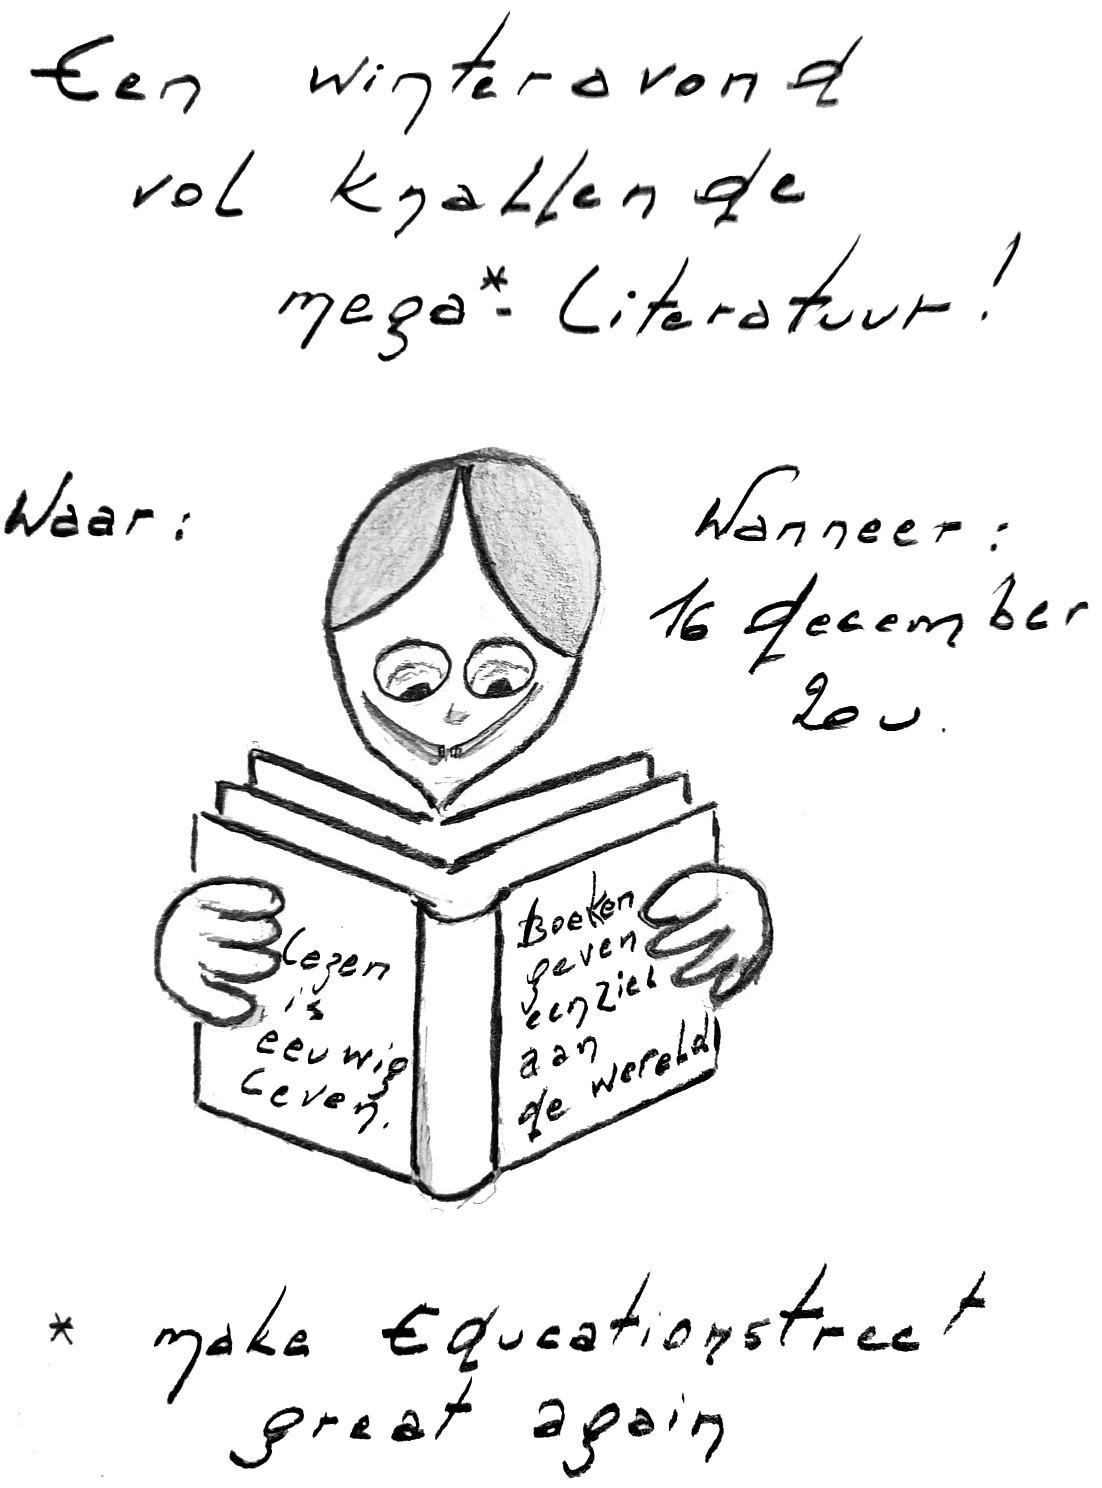 Een winteravond
vol knallende
mega*- literatuur!
Waar:
Wanneer:
16 december
20 u.
Lezen
is
eeuwig
leven.
Boeken
geven
een ziel
aan
de wereld
* make Educationstreet
great again